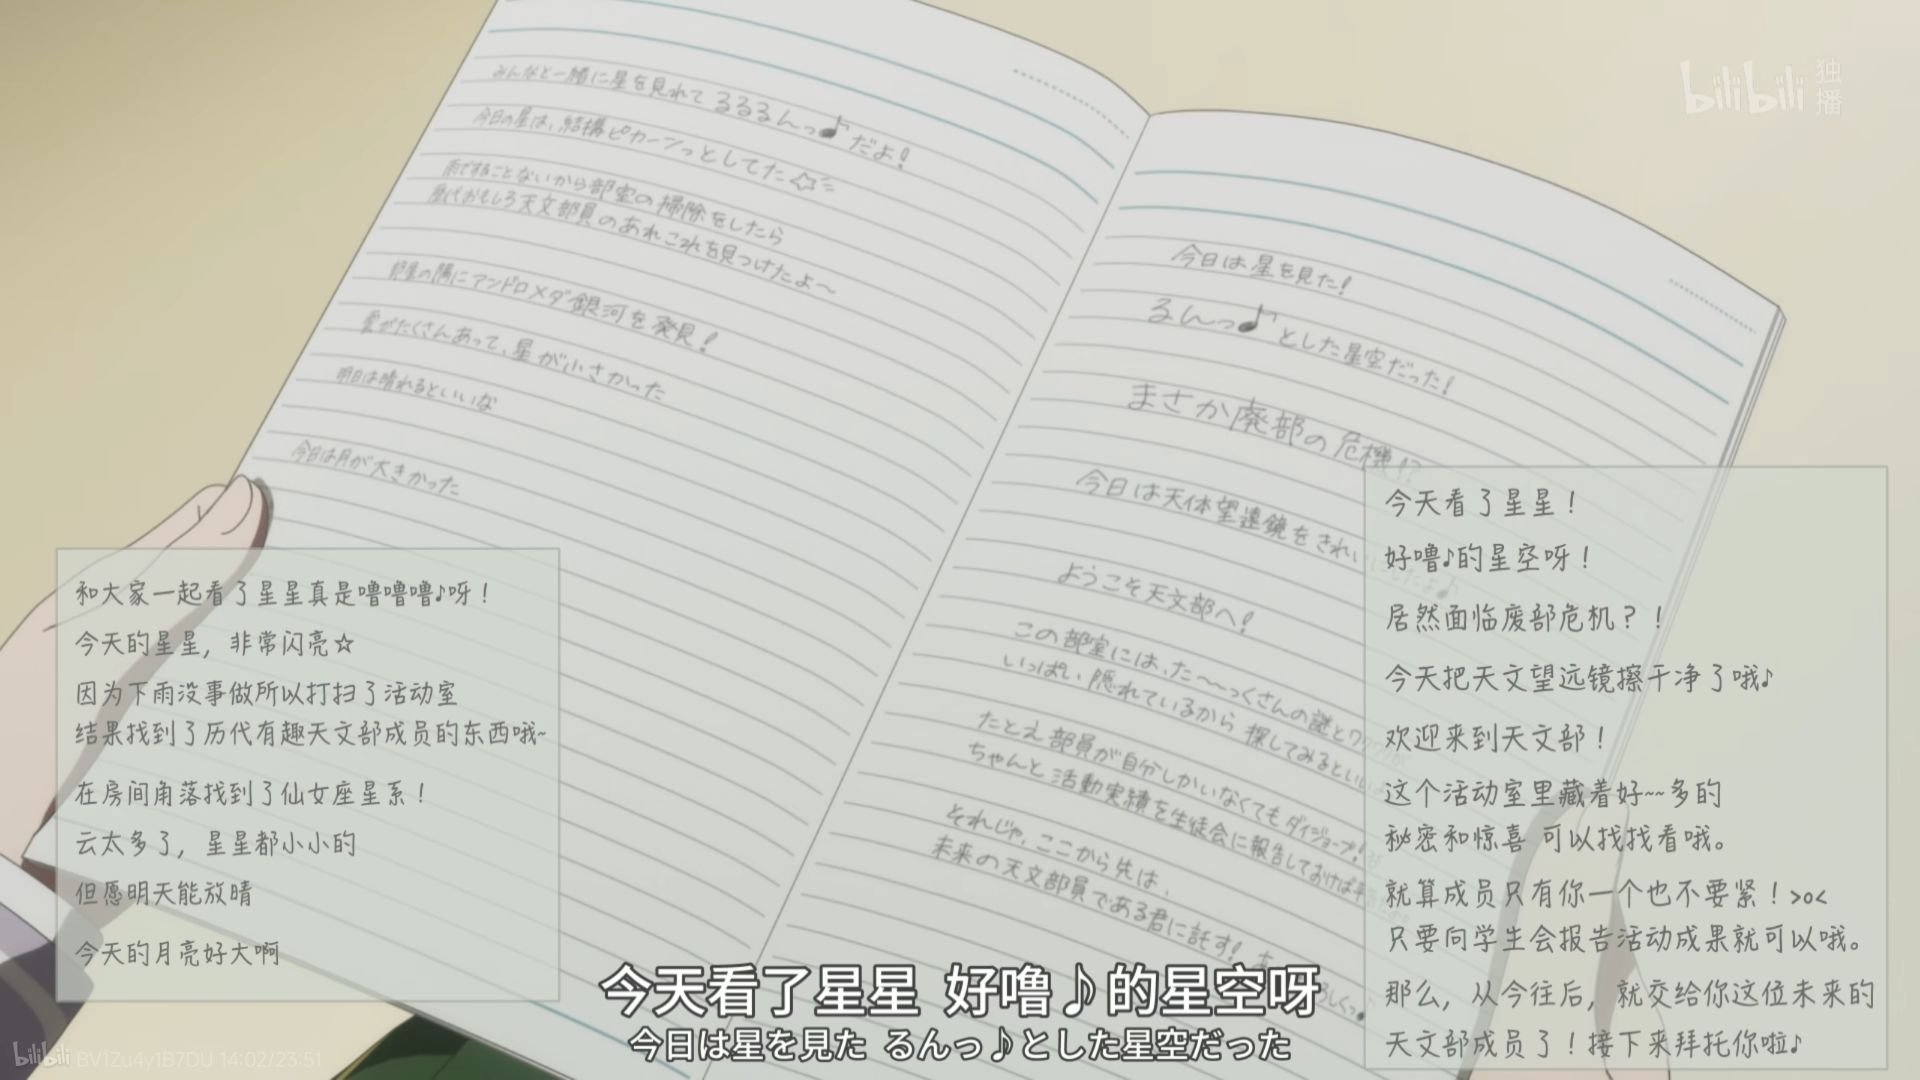 みんなと一緒に星を見れて るるるんっ♪だよ!
今日の星は、結構ピカーンっとしてた☆
雨ですることないから部室の掃除をしたら
歴代おもしろ天文部員のあれこれを見つけたよ〜
部屋の隅にアンドロメダ銀河を発見!
雲がたくさんあって、星が小さかった
明日は晴れるといいな
今日は月が大きかった
今日は星を見た!
るんっ♪とした星空だった!
まさか廃部の危機!?
今日は天体望遠鏡をきれい
ようこそ天文部へ!
この部室には、た〜〜っくさんの謎とワクワクが
いっぱい隠れているから 探してみるといい
たとえ部員が自分しかいなくてもダイジョーブ!
ちゃんと活動実績を生徒会に報告しておけば
それじゃ、ここから先は、
未来の天文部員である君に託す!
和大家一起看了星星真是噜噜噜♪呀!
今天的星星, 非常闪亮☆
因为下雨没事做所以打扫了活动室
结果找到了历代有趣天文部成员的东西哦~
在房间角落找到了仙女座星系!
云太多了, 星星都小小的
但愿明天能放晴
今天的月亮好大啊
今天看了星星!
好噜♪的星空呀!
居然面临废部危机?!
今天把天文望远镜擦干净了哦♪
欢迎来到天文部!
这个活动室里藏着好~~多的
秘密和惊喜 可以找找看哦。
就算成员只有你一个也不要紧!>o<
只要向学生会报告活动成果就可以哦。
那么, 从今往后, 就交给你这位未来的
天文部成员了!接下来拜托你啦♪
今天看了星星 好噜♪的星空呀
今日は星を見た るんっ♪とした星空だった
bilibili 独播
bilibili BV1Zu4y1B7DU 14:02/23:51